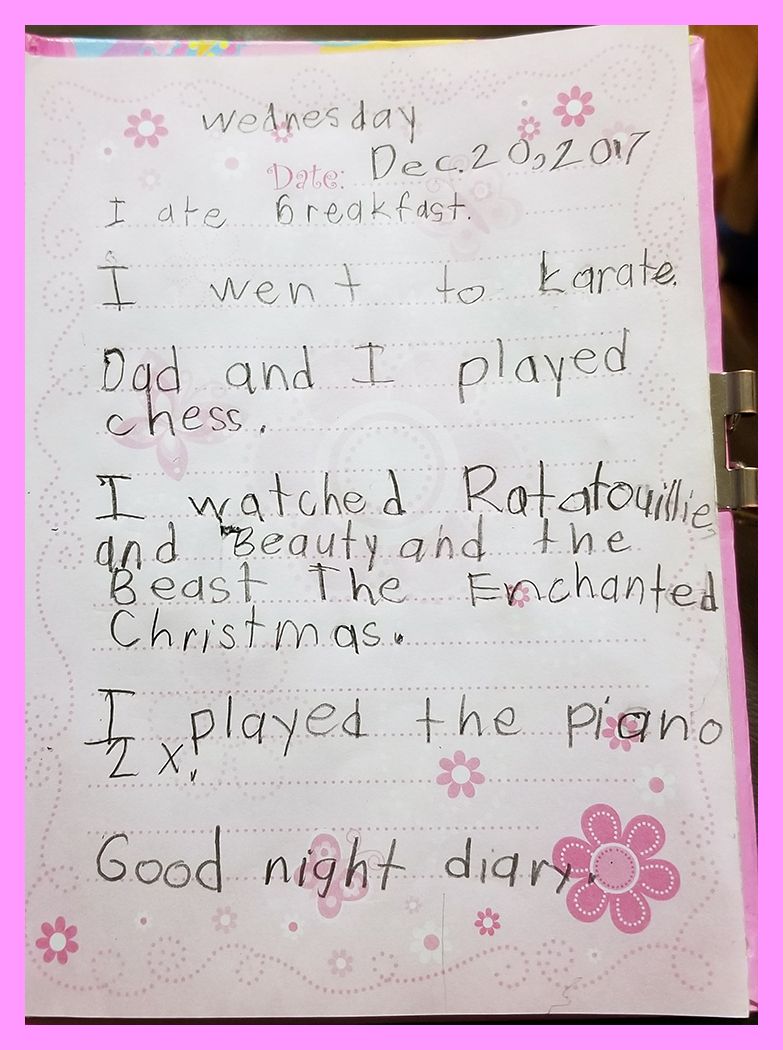 Wednesday
Date: Dec. 20, 2017
I ate breakfast.
I went to karate.
Dad and I played
chess.
I watched Ratatouillie
and Beauty and the
Beast The Enchanted
Christmas.
I played the piano
2 x.
Good night diary.